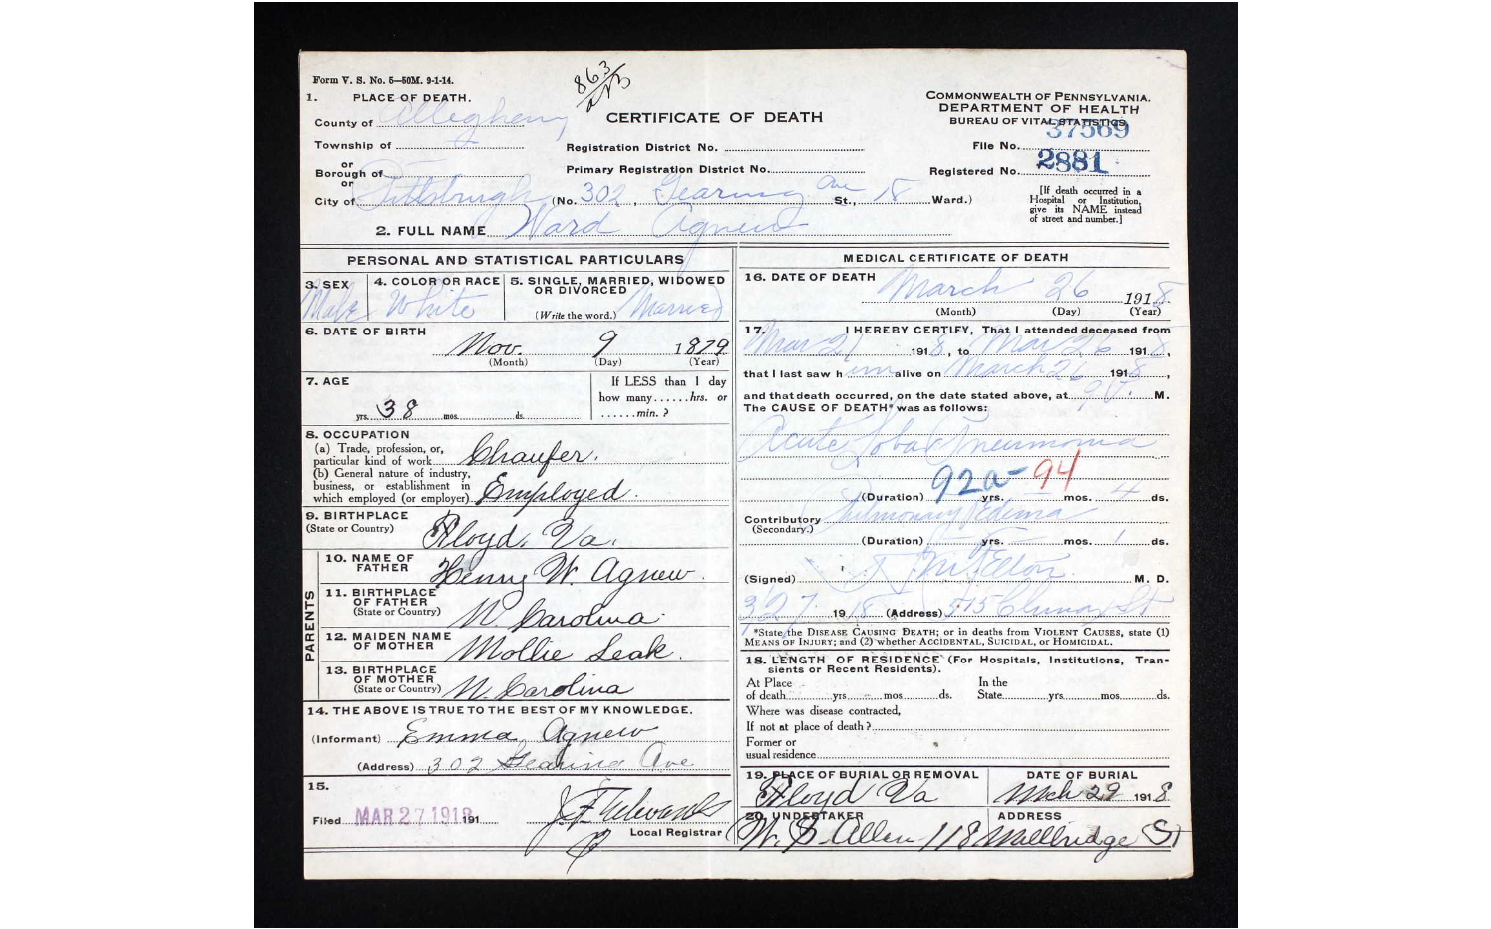 Form V. S. No. 5—50M. 9-1-14.
863
1. PLACE OF DEATH.
County of Allegheny
Township of
or
Borough of
or
City of Pittsburgh (No. 302, Gearing Ave St., 18 Ward.)
CERTIFICATE OF DEATH
Registration District No.
Primary Registration District No.
COMMONWEALTH OF PENNSYLVANIA.
DEPARTMENT OF HEALTH
BUREAU OF VITAL STATISTICS
File No. 37569
Registered No. 2881
[If death occurred in a
Hospital or Institution,
give its NAME instead
of street and number.]
2. FULL NAME Ward Agnew
PERSONAL AND STATISTICAL PARTICULARS
3. SEX Male
4. COLOR OR RACE White
5. SINGLE, MARRIED, WIDOWED
OR DIVORCED
(Write the word.) Married
6. DATE OF BIRTH
Nov. 9 1879
(Month) (Day) (Year)
7. AGE
38 yrs. mos. ds.
If LESS than 1 day
how many......hrs. or
......min. ?
8. OCCUPATION
(a) Trade, profession, or,
particular kind of work Chaufer.
(b) General nature of industry,
business, or establishment in
which employed (or employer) Employed.
9. BIRTHPLACE
(State or Country) Floyd, Va.
PARENTS
10. NAME OF
FATHER Henry W. Agnew.
11. BIRTHPLACE
OF FATHER
(State or Country) N. Carolina.
12. MAIDEN NAME
OF MOTHER Mollie Leak.
13. BIRTHPLACE
OF MOTHER
(State or Country) N. Carolina
14. THE ABOVE IS TRUE TO THE BEST OF MY KNOWLEDGE.
(Informant) Emma Agnew
(Address) 302 Gearing Ave
15.
Filed MAR 27 1918 191
Local Registrar
MEDICAL CERTIFICATE OF DEATH
16. DATE OF DEATH
March 26 1918
(Month) (Day) (Year)
17. I HEREBY CERTIFY, That I attended deceased from
Mar 21 1918, to Mar 26 1918,
that I last saw him alive on March 26 1918,
and that death occurred, on the date stated above, at M.
The CAUSE OF DEATH* was as follows:
Acute Lobar Pneumonia
92a- 94
(Duration) yrs. mos. 4 ds.
Contributory Pulmonary Edema
(Secondary.)
(Duration) yrs. mos. 1 ds.
(Signed) M. D.
3 27 1918 (Address) 515 St
*State the DISEASE CAUSING DEATH; or in deaths from VIOLENT CAUSES, state (1)
MEANS OF INJURY; and (2) whether ACCIDENTAL, SUICIDAL, or HOMICIDAL.
18. LENGTH OF RESIDENCE (For Hospitals, Institutions, Tran-
sients or Recent Residents).
At Place In the
of death yrs. mos. ds. State yrs. mos. ds.
Where was disease contracted,
If not at place of death ?
Former or
usual residence
19. PLACE OF BURIAL OR REMOVAL
Floyd Va
DATE OF BURIAL
Mch 29 1918
20. UNDERTAKER
W. S. Allen
ADDRESS
118 St